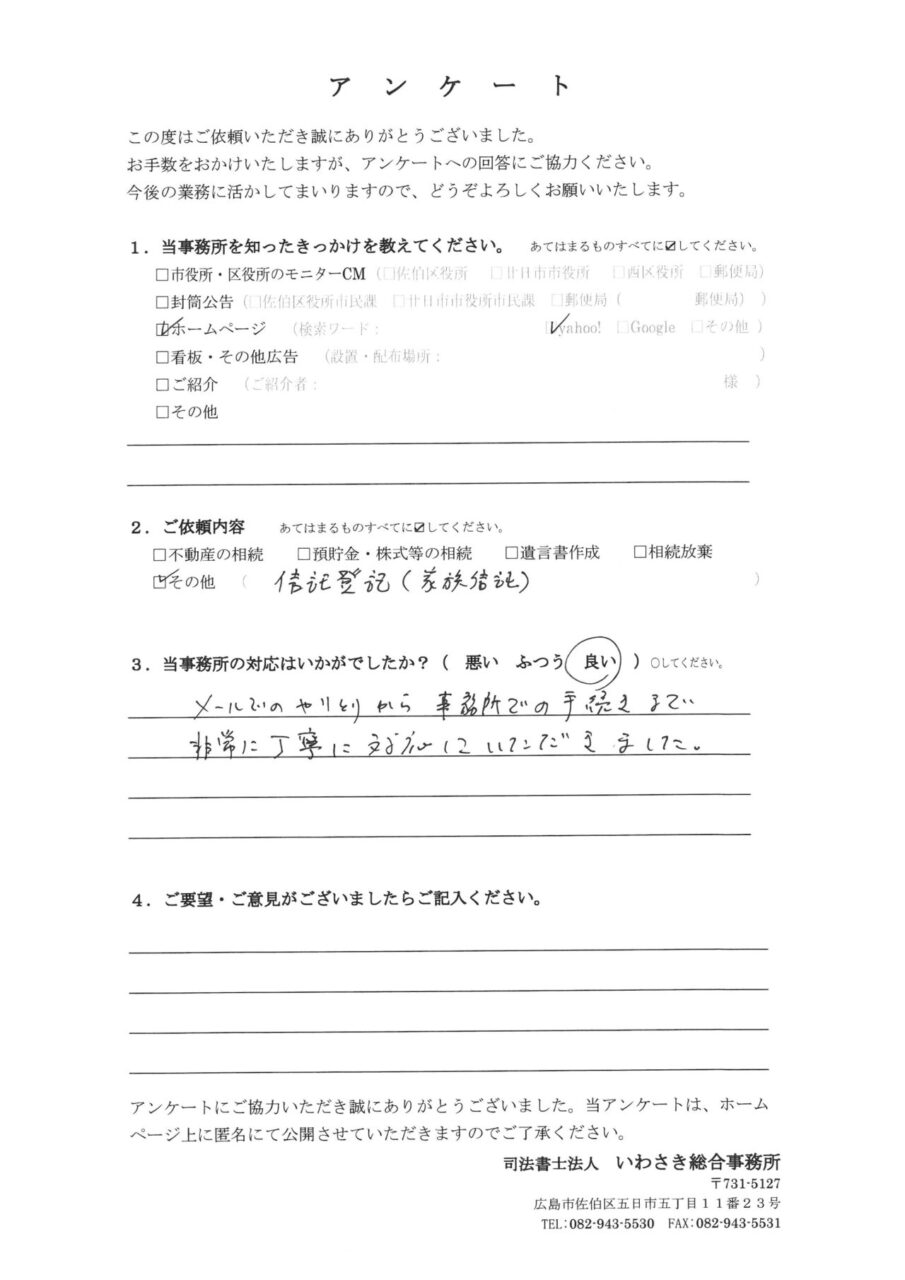 アンケート
この度はご依頼いただき誠にありがとうございました。
お手数をおかけいたしますが、アンケートへの回答にご協力ください。
今後の業務に活かしてまいりますので、どうぞよろしくお願いいたします。
1．当事務所を知ったきっかけを教えてください。 あてはまるものすべてに☑してください。
□市役所・区役所のモニターCM（□佐伯区役所 □廿日市市役所 □西区役所 □郵便局）
□封筒公告（□佐伯区役所市民課 □廿日市市役所市民課 □郵便局（ 郵便局））
☑ホームページ （検索ワード： ☑yahoo! □Google □その他）
□看板・その他広告 （設置・配布場所： ）
□ご紹介 （ご紹介者： 様 ）
□その他
2．ご依頼内容 あてはまるものすべてに☑してください。
□不動産の相続 □預貯金・株式等の相続 □遺言書作成 □相続放棄
☑その他 （ 信託登記(家族信託) ）
3．当事務所の対応はいかがでしたか？（ 悪い ふつう 良い ）○してください。
メールでのやりとりから事務所での手続きまで
非常に丁寧に対応していただきました。
4．ご要望・ご意見がございましたらご記入ください。
アンケートにご協力いただき誠にありがとうございました。当アンケートは、ホーム
ページ上に匿名にて公開させていただきますのでご了承ください。
司法書士法人 いわさき総合事務所
〒731-5127
広島市佐伯区五日市五丁目１１番２３号
TEL:082-943-5530 FAX:082-943-5531